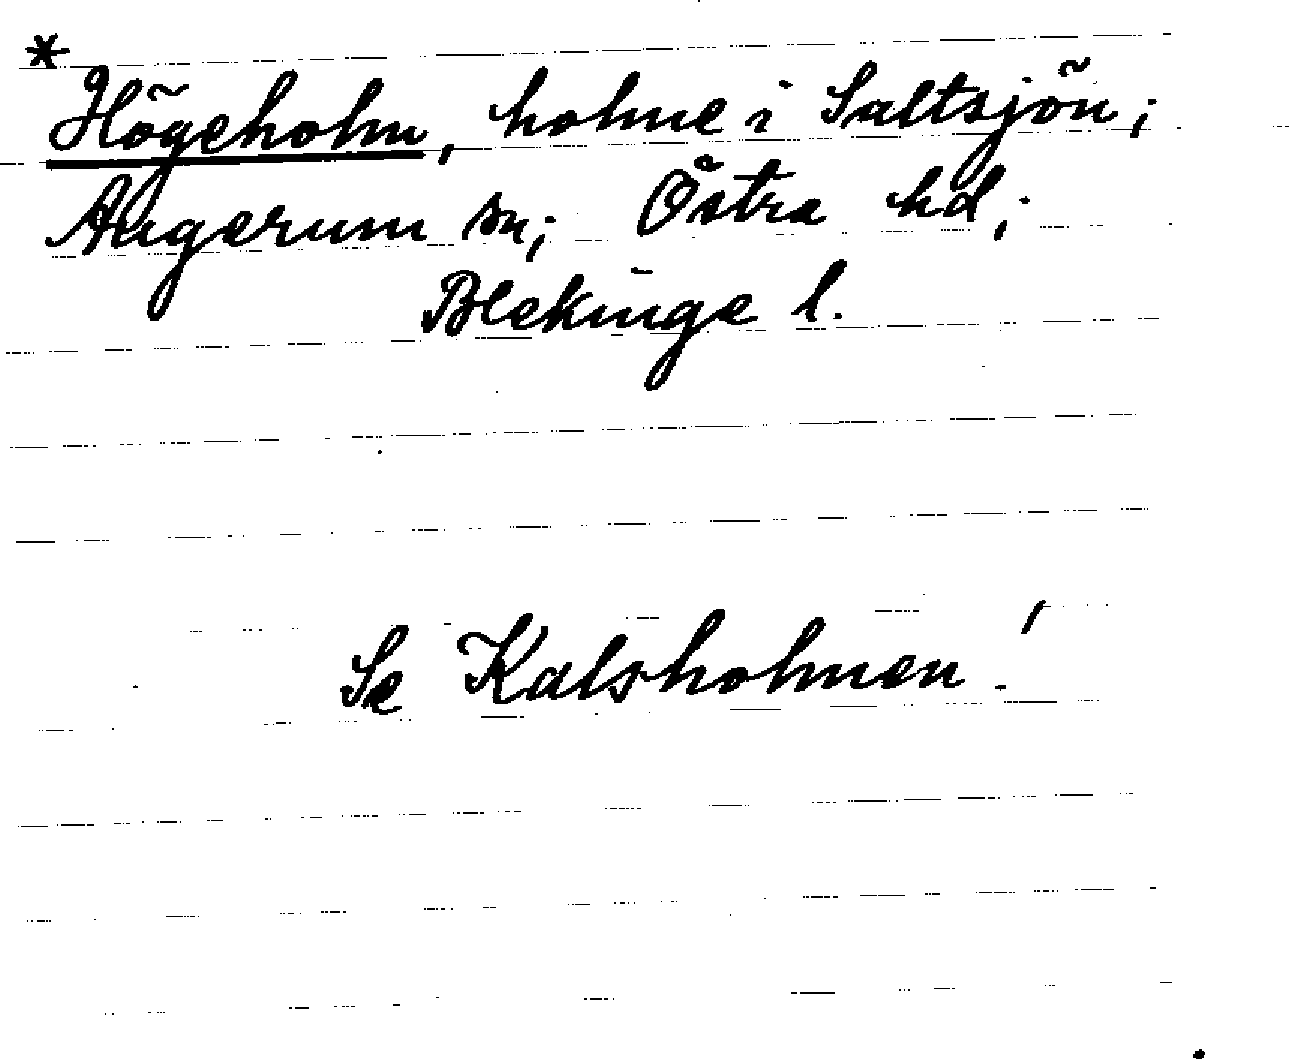 * Högeholm, holme i Saltsjön;
Augerum sn; Östra hd;
Blekinge l.
Se Kalsholmen!